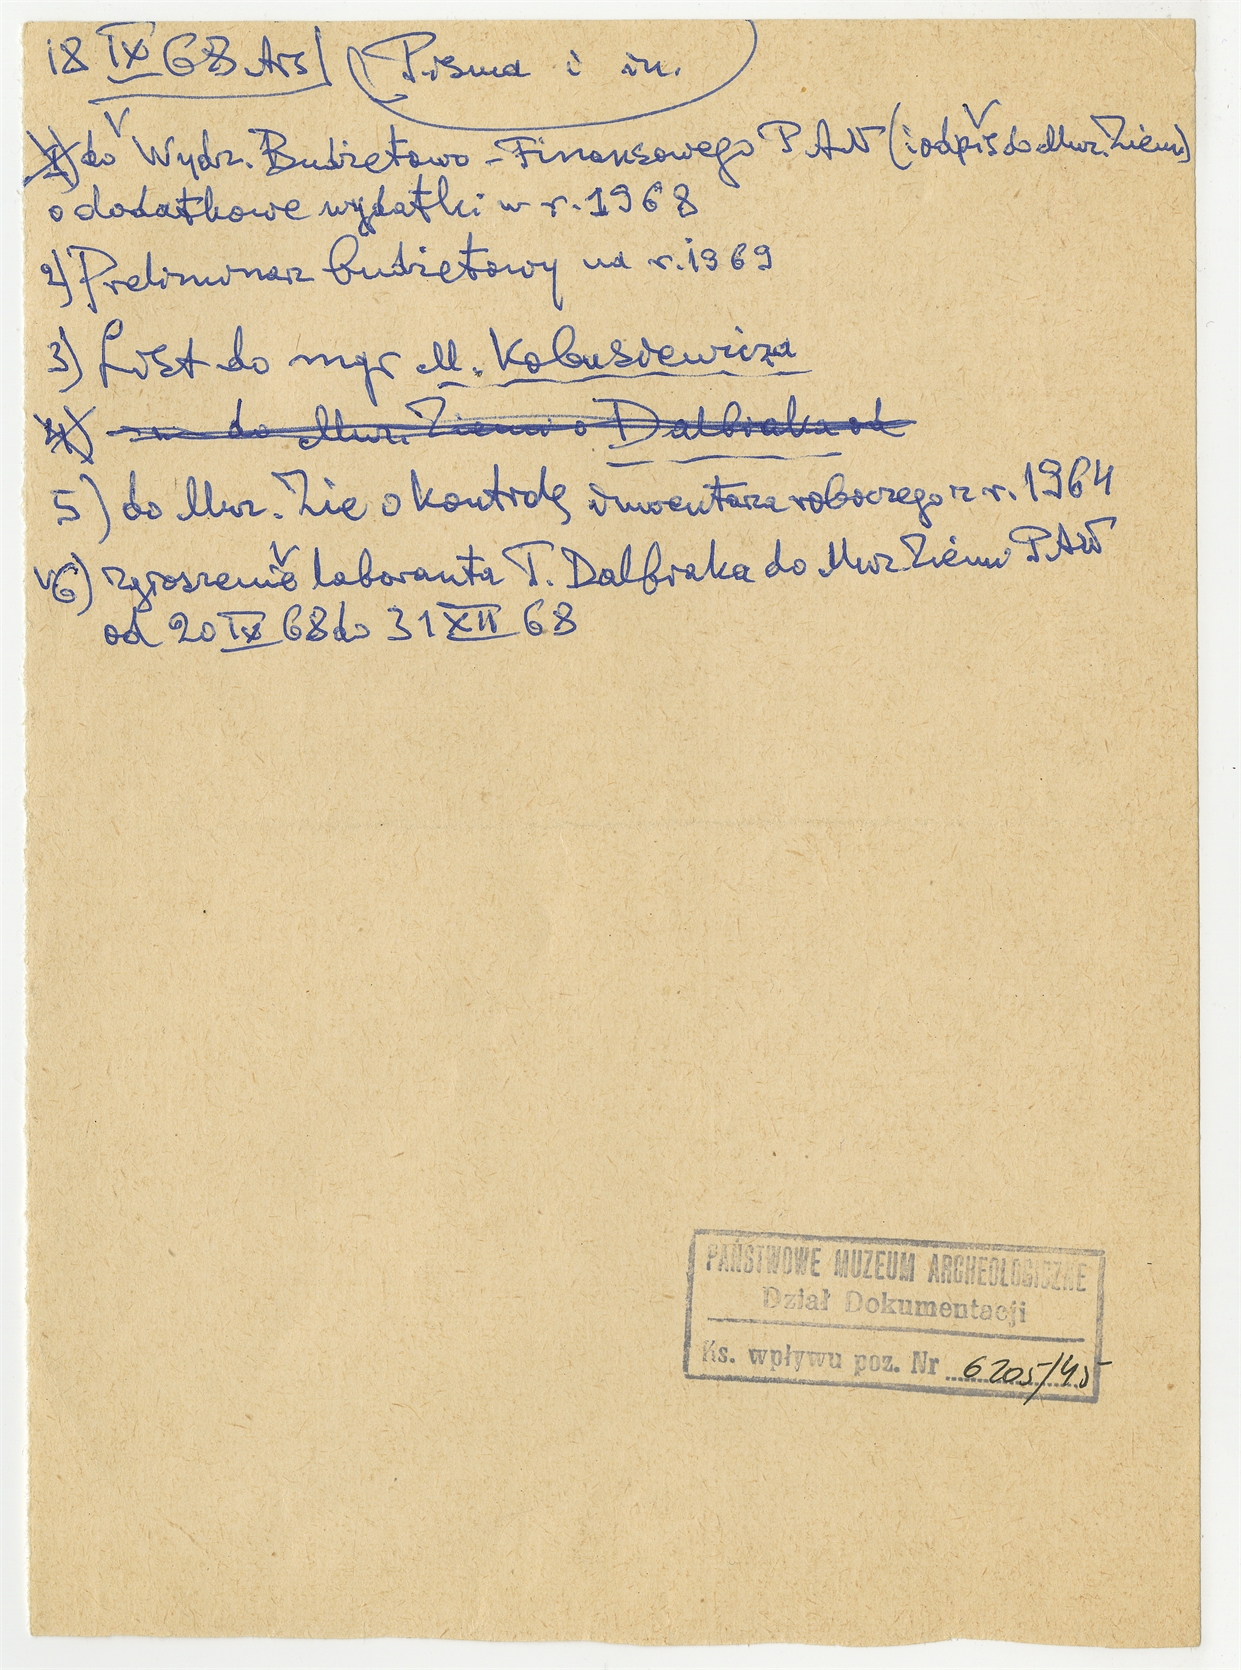 18 IX 68 Ars (Pisma i in.
1) do Wydz. Budżetowo-Finansowego PAN (i odpis do Muz. Ziemi)
o dodatkowe wydatki w r. 1968
2) Preliminarz budżetowy na r. 1969
3) List do mgr M. Kobusiewicza
4) do Muz. Ziemi o Dalbiaka od
5) do Muz. Zie o kontrolę inwentarza roboczego z r. 1964
v6) zgłoszenie laboranta T. Dalbiaka do Muz Ziemi PAN
od 20 IX 68 do 31 XII 68
PAŃSTWOWE MUZEUM ARCHEOLOGICZNE
Dział Dokumentacji
Ks. wpływu poz. Nr 6205/45